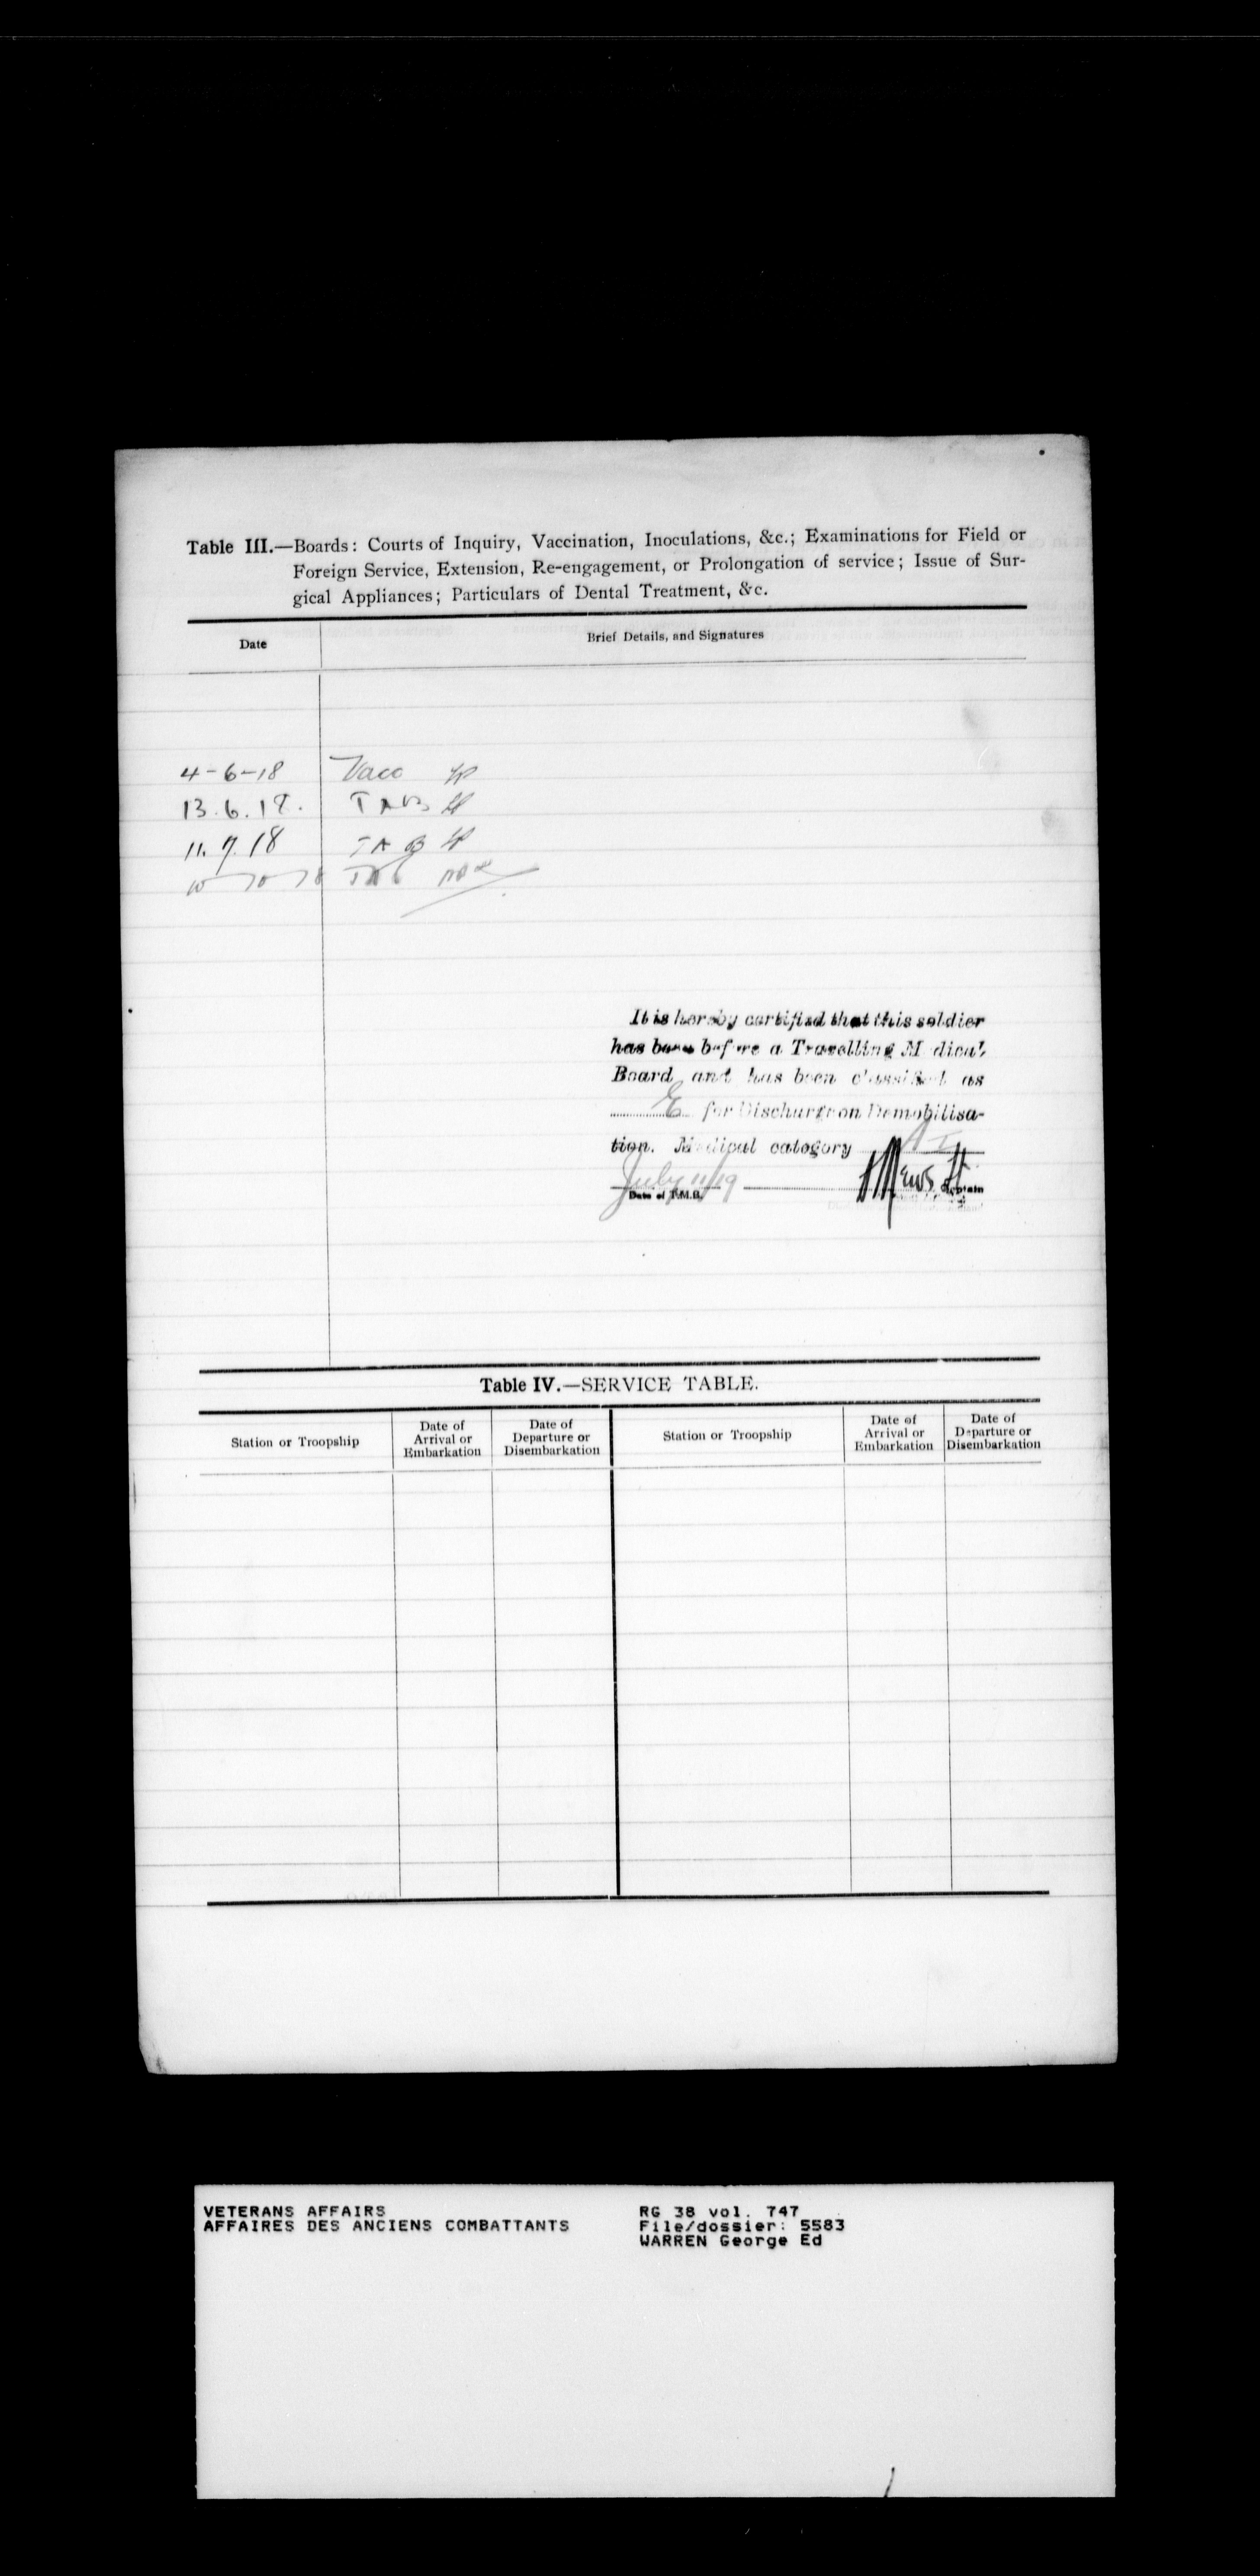 Table III.—Boards: Courts of Inquiry, Vaccination, Inoculations, &c.; Examinations for Field or
Foreign Service, Extension, Re-engagement, or Prolongation of service; Issue of Sur-
gical Appliances; Particulars of Dental Treatment, &c.
Date Brief Details, and Signatures
4-6-18 Vacc
13.6.18. TAB
11.7.18 TAB
10-10-18 TAB
It is hereby certified that this soldier
has been before a Travelling Medical
Board and has been classified as
E for Discharge on Demobilisa-
tion. Medical category A I
July 11/19 Mews
Date of T.M.B. Captain
Table IV.—SERVICE TABLE.
Station or Troopship Date of Arrival or Embarkation Date of Departure or Disembarkation Station or Troopship Date of Arrival or Embarkation Date of Departure or Disembarkation
VETERANS AFFAIRS RG 38 vol. 747
AFFAIRES DES ANCIENS COMBATTANTS File/dossier: 5583
WARREN George Ed